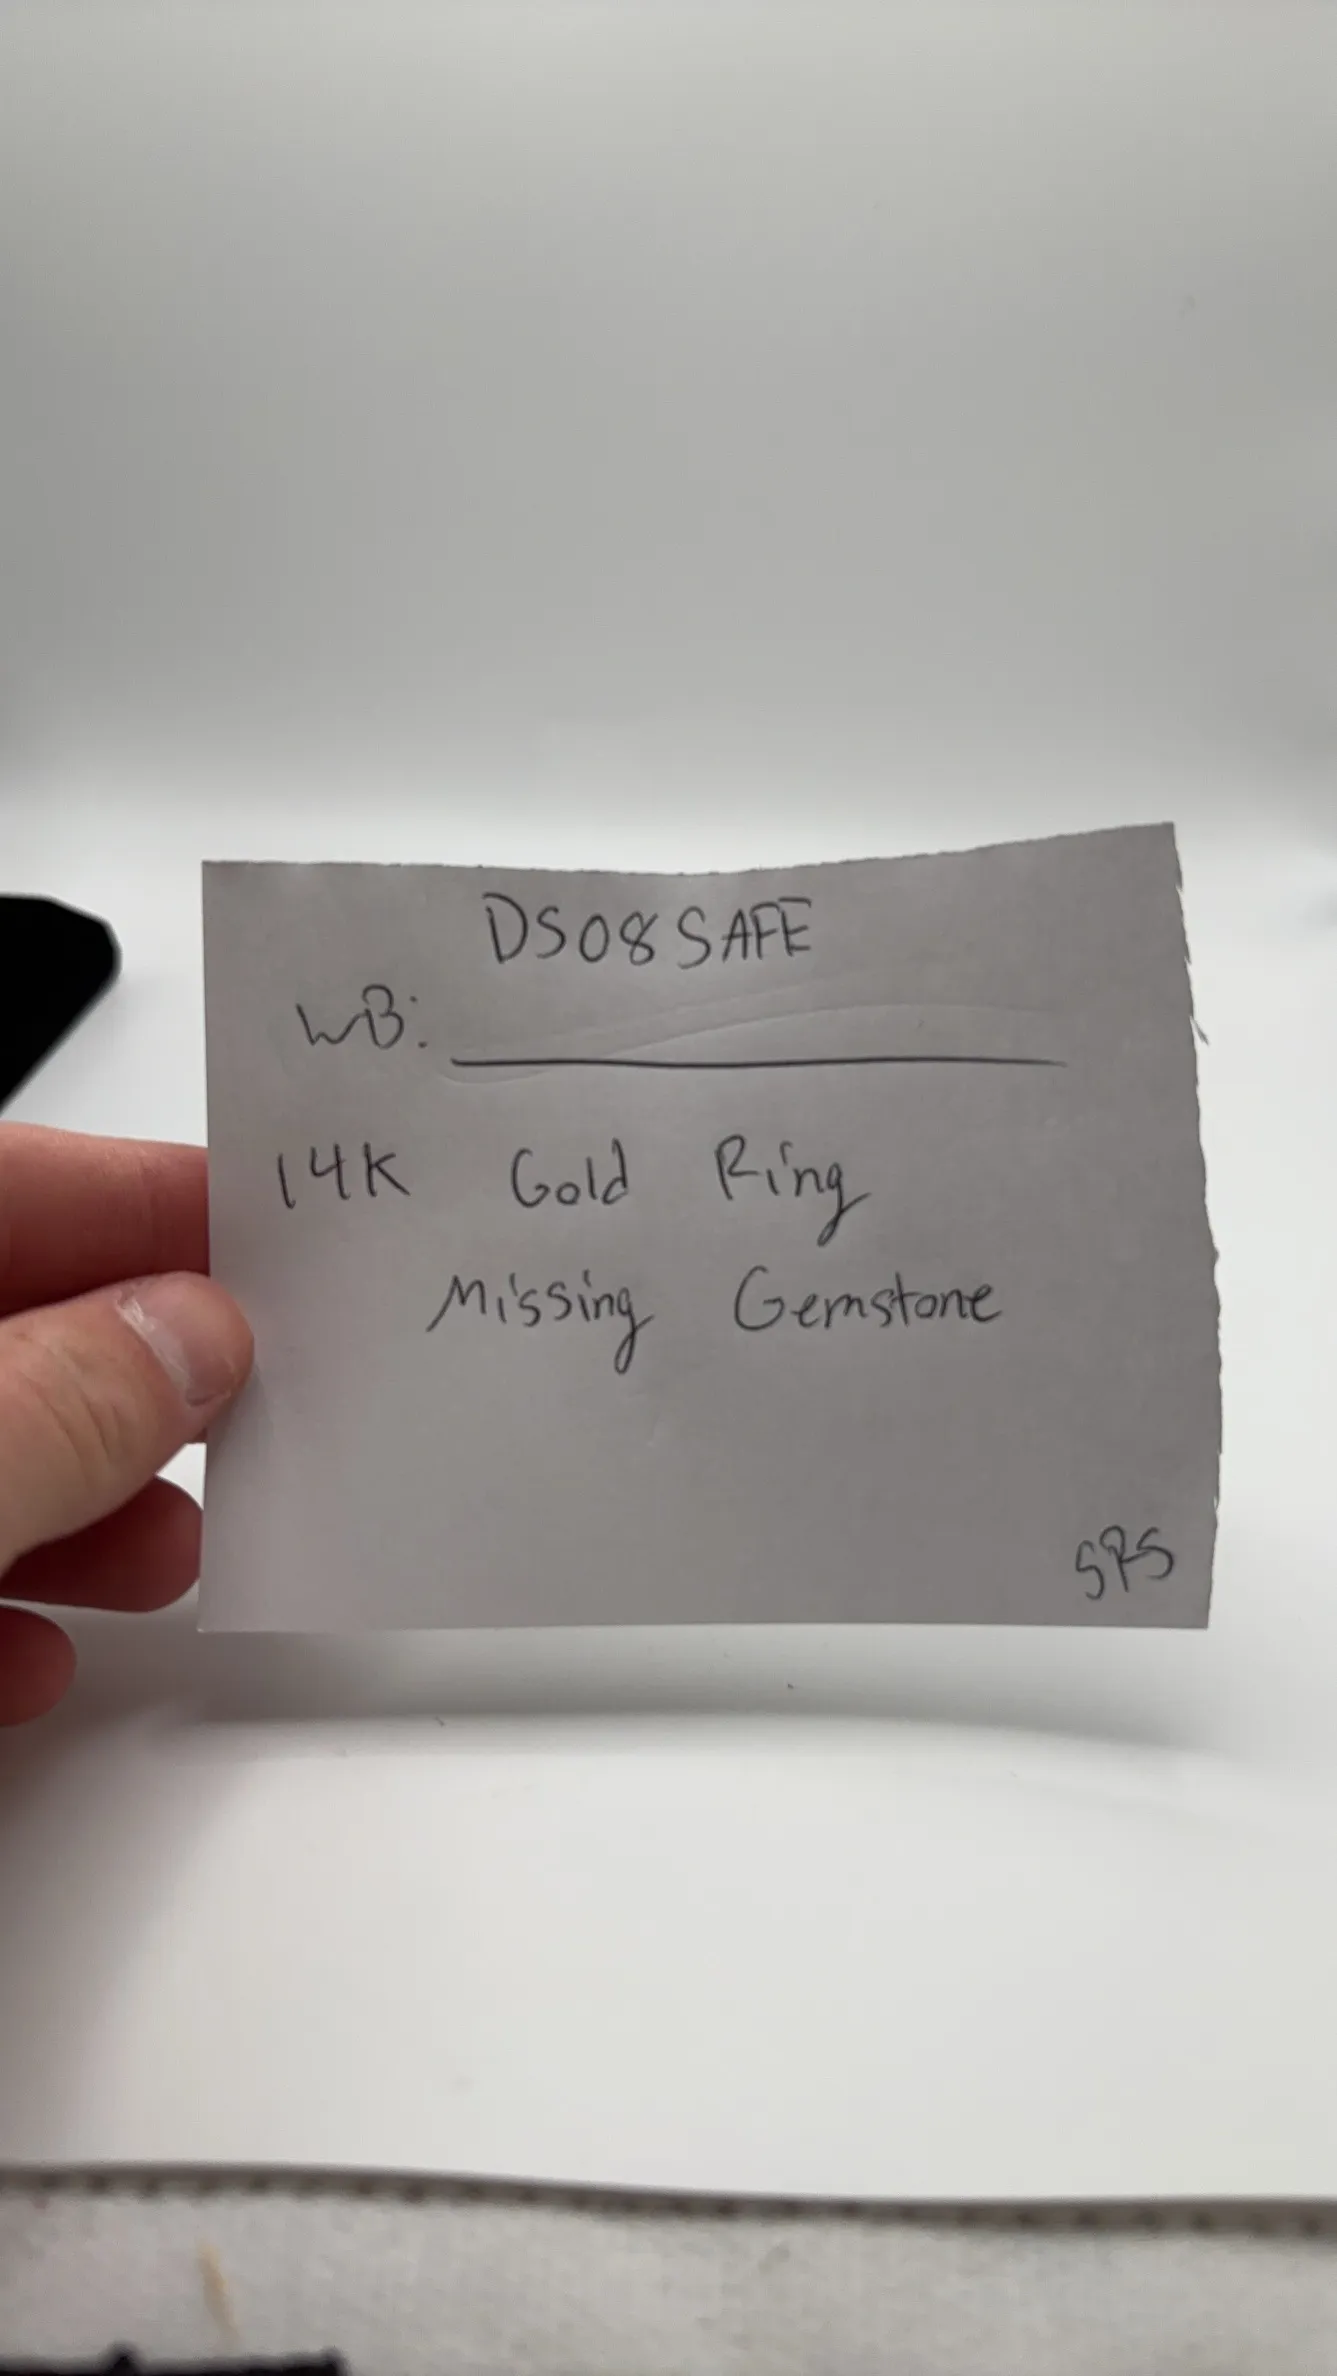 DS08SAFE
WB: ____________
14K Gold Ring
Missing Gemstone
SRS